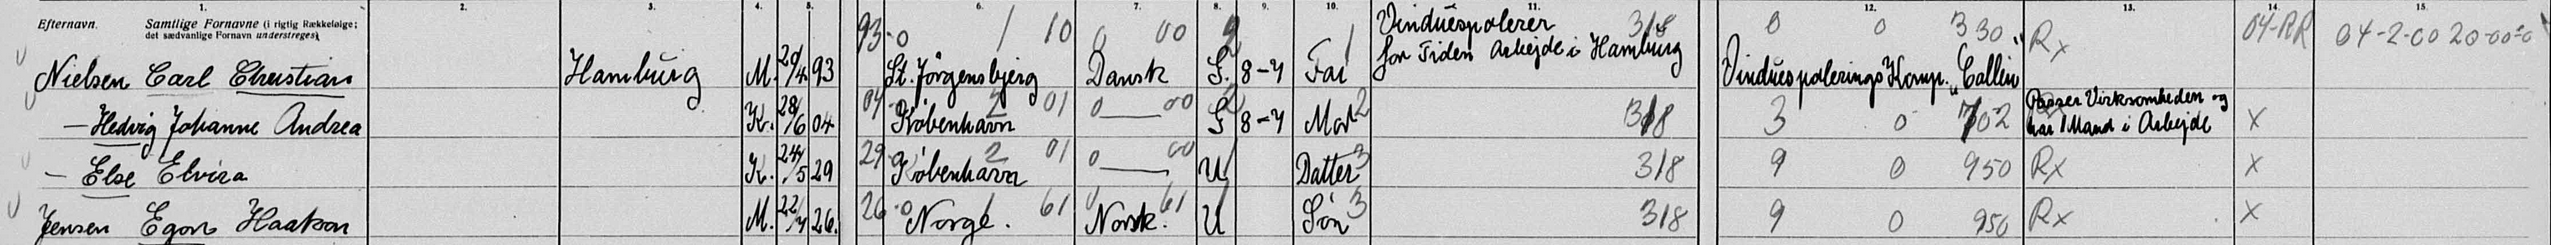 1. 2. 3. 4. 5. 6. 7. 8. 9. 10. 11. 12. 13. 14. 15.
Efternavn. Samtlige Fornavne (i rigtig Rækkefølge;
det sædvanlige Fornavn understreges)
93 0 1 10 0 00 2 1 Vinduespolerer 318 0 0 330 Rx 04-RR 04-2-00 20-00-0
Nielsen Carl Christian Hamburg M. 20/4 93 St. Jörgensbjerg Dansk S. 8-4 Far for Tiden Arbejde i Hamburg Vinduespolerings Komp. "Collin"
04 2 01 0 00 2 318 3 0 702 Passer Virksomheden og
— Hedvig Johanne Andrea K. 28/6 04 København — S 8-4 Mor har 1 Mand i Arbejde X
29 0 2 01 0 00 3 318 9 0 950 Rx X
— Else Elvira K. 24/5 29 København — U Datter
26 0 1 61 0 61 3 318 9 0 950 Rx X
Jensen Egon Haakson M. 22/4 26. Norge. Norsk. U Søn